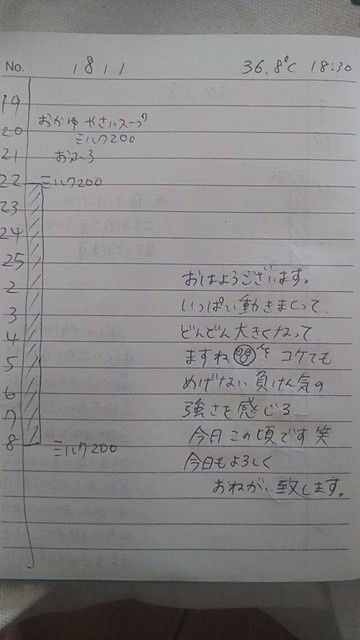 No. 1811 36.8℃ 18:30
19
20 おかゆ やさいスープ
ミルク200
21 おふろ
22 ミルク200
23
24
25
2
3
4
5
6
7
8 ミルク200
おはようございます。
いっぱい動きまくって
どんどん大きくなって
ますね を コケても
めげない 負けん気の
強さを感じる
今日この頃です 笑
今日もよろしく
おねがい致します。